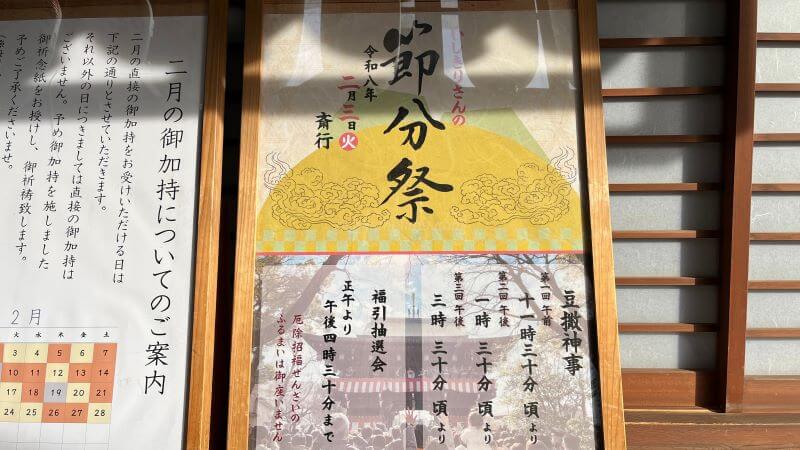 いしきりさんの
節分祭
令和八年
二月三日火
斎行
豆撒神事
第一回 午前
十一時三十分頃より
第二回 午後
一時三十分頃より
第三回 午後
三時三十分頃より
福引抽選会
正午より
午後四時三十分まで
厄除招福ぜんざいの
ふるまいは御座いません
二月の御加持についてのご案内
二月の直接の御加持をお受けいただける日は
下記の通りとさせていただきます。
それ以外の日につきましては直接の御加持は
ございません。予め御加持を施しました
御祈念紙をお授けし、御祈祷致します。
予めご了承くださいませ。
2月
火 水 木 金 土
3 4 5 6 7
10 11 12 13 14
17 18 19 20 21
24 25 26 27 28